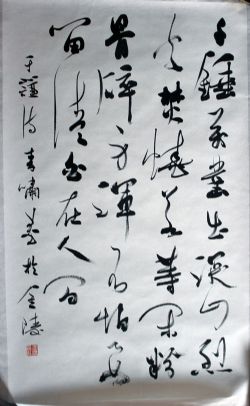 千錘萬鑿出深山烈
火焚燒若等閑粉
骨碎身渾不怕要
留清白在人間
于謙詩青嘯書於金陵